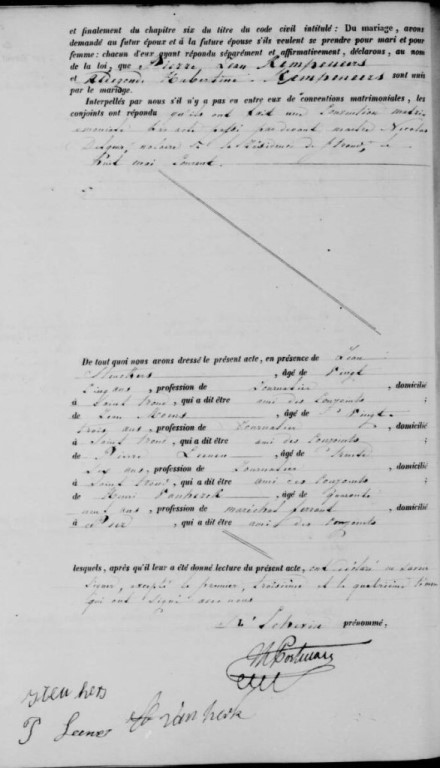 et finalement du chapitre six du titre du code civil intitulé : Du mariage, avons
demandé au futur époux et à la future épouse s'ils veulent se prendre pour mari et pour
femme : chacun d'eux ayant répondu séparément et affirmativement, déclarons, au nom
de la loi, que Pierre Jean Kempeneers
et Hubertine Kempeneers sont unis
par le mariage.
Interpellés par nous s'il n'y a pas eu entre eux de conventions matrimoniales, les
conjoints ont répondu qu'ils ont fait une Convention matri-
moniale par acte passé par devant maitre Nicolas
notaire à la Résidence de St Trond, le
huit mai Courant.
De tout quoi nous avons dressé le présent acte, en présence de Jean
, âgé de Vingt
cinq ans , profession de Journalier , domicilié
à Saint Trond , qui a dit être ami des Conjoints
de Jean , âgé de Vingt
trois ans , profession de Journalier , domicilié
à Saint Trond , qui a dit être ami des Conjoints
de Pierre Leenen , âgé de trente
six ans, profession de Journalier , domicilié
à Saint Trond , qui a dit être ami des Conjoints
de Henri , âgé de Quarante
neuf ans , profession de maréchal ferrant , domicilié
à , qui a dit être ami des Conjoints
lesquels, après qu'il leur a été donné lecture du présent acte, ont déclaré ne savoir
signer, excepté le premier, troisième et le quatrième témoin
qui ont signé avec nous
L' Echevin prénommé,
P Leenen